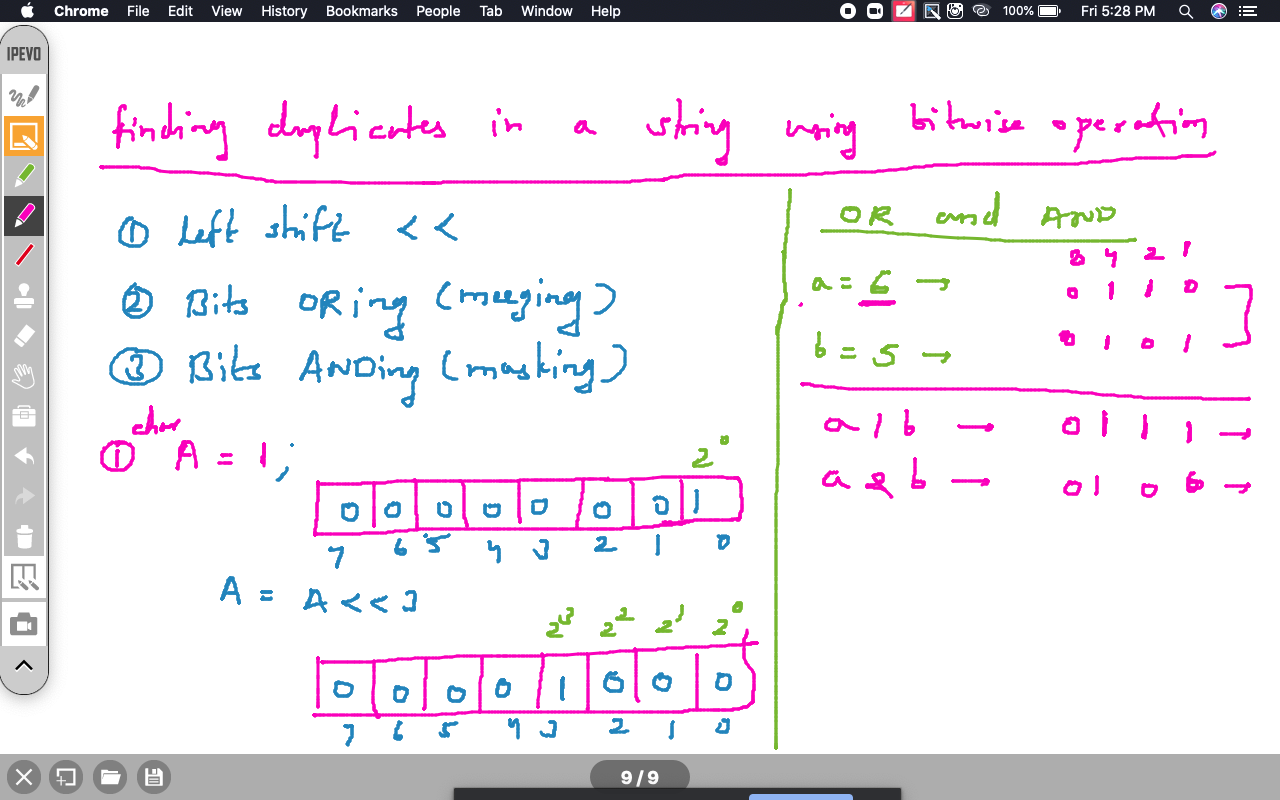 Chrome File Edit View History Bookmarks People Tab Window Help 100% Fri 5:28 PM
IPEVO
finding duplicates in a string using bitwise operation
① Left shift <<
② Bits ORing (merging)
③ Bits ANDing (masking)
① char A = 1;
2⁰
0 0 0 0 0 0 0 1
7 6 5 4 3 2 1 0
A = A << 3
2³ 2² 2¹ 2⁰
0 0 0 0 1 0 0 0
7 6 5 4 3 2 1 0
OR and AND
8 4 2 1
a = 6 → 0 1 1 0
b = 5 → 0 1 0 1
a | b → 0 1 1 1 →
a & b → 0 1 0 0 →
9 / 9